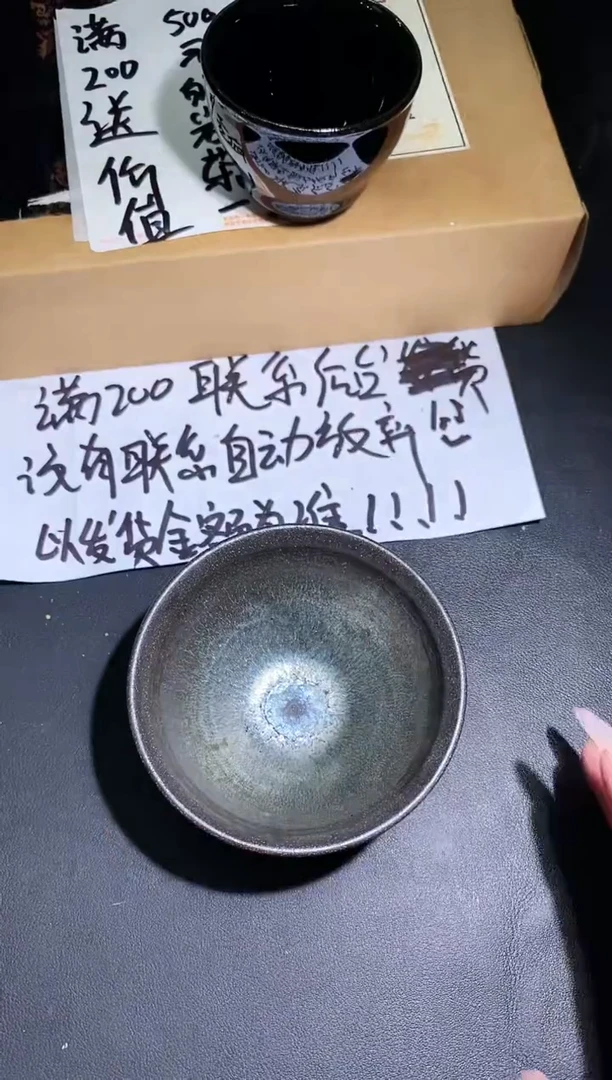 满200送价值
500元的岩茶
满200联系后台
没有联系自动放弃
以发货金额为准!!!!